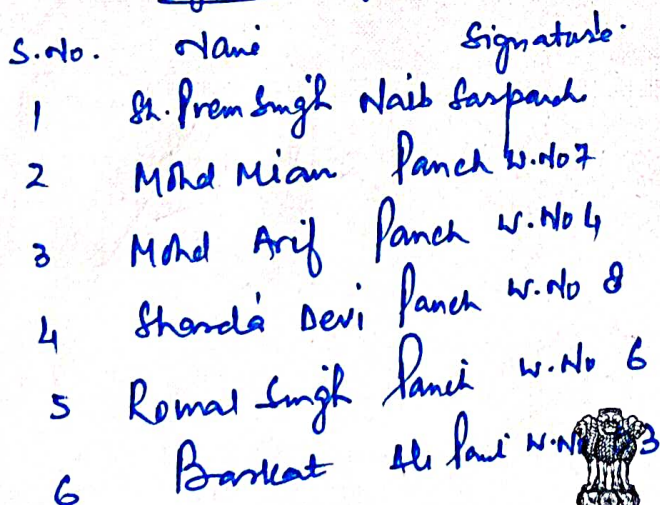 S.No. Name Signature.
1 Sh. Prem Singh Naib Sarpanch
2 Mohd Mian Panch W.No 7
3 Mohd Arif Panch W.No 4
4 Sharda Devi Panch W.No 8
5 Romal Singh Panch W.No 6
6 Barkat Ali Panch W.No 3